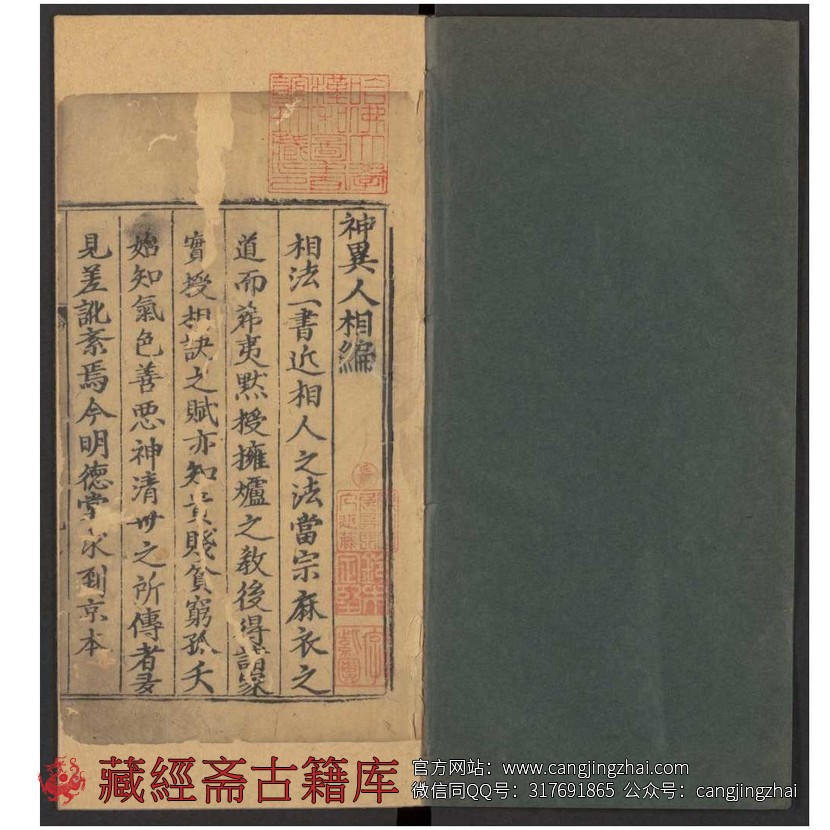 神異人相編
相法一書近相人之法當宗麻衣之
道而希夷默授擁爐之教後得
實授相訣之賦亦知貴賤貧窮孤夭
始知氣色善惡神清丗之所傳者多
見差訛紊焉今明德堂求到京本
哈佛大學
漢和圖書
館珍藏印
藏經斋古籍库
官方网站：www.cangjingzhai.com
微信同QQ号：317691865 公众号：cangjingzhai